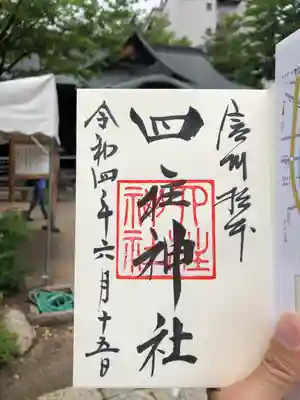 信州松本
四柱神社
四柱
神社
令和四年六月十五日